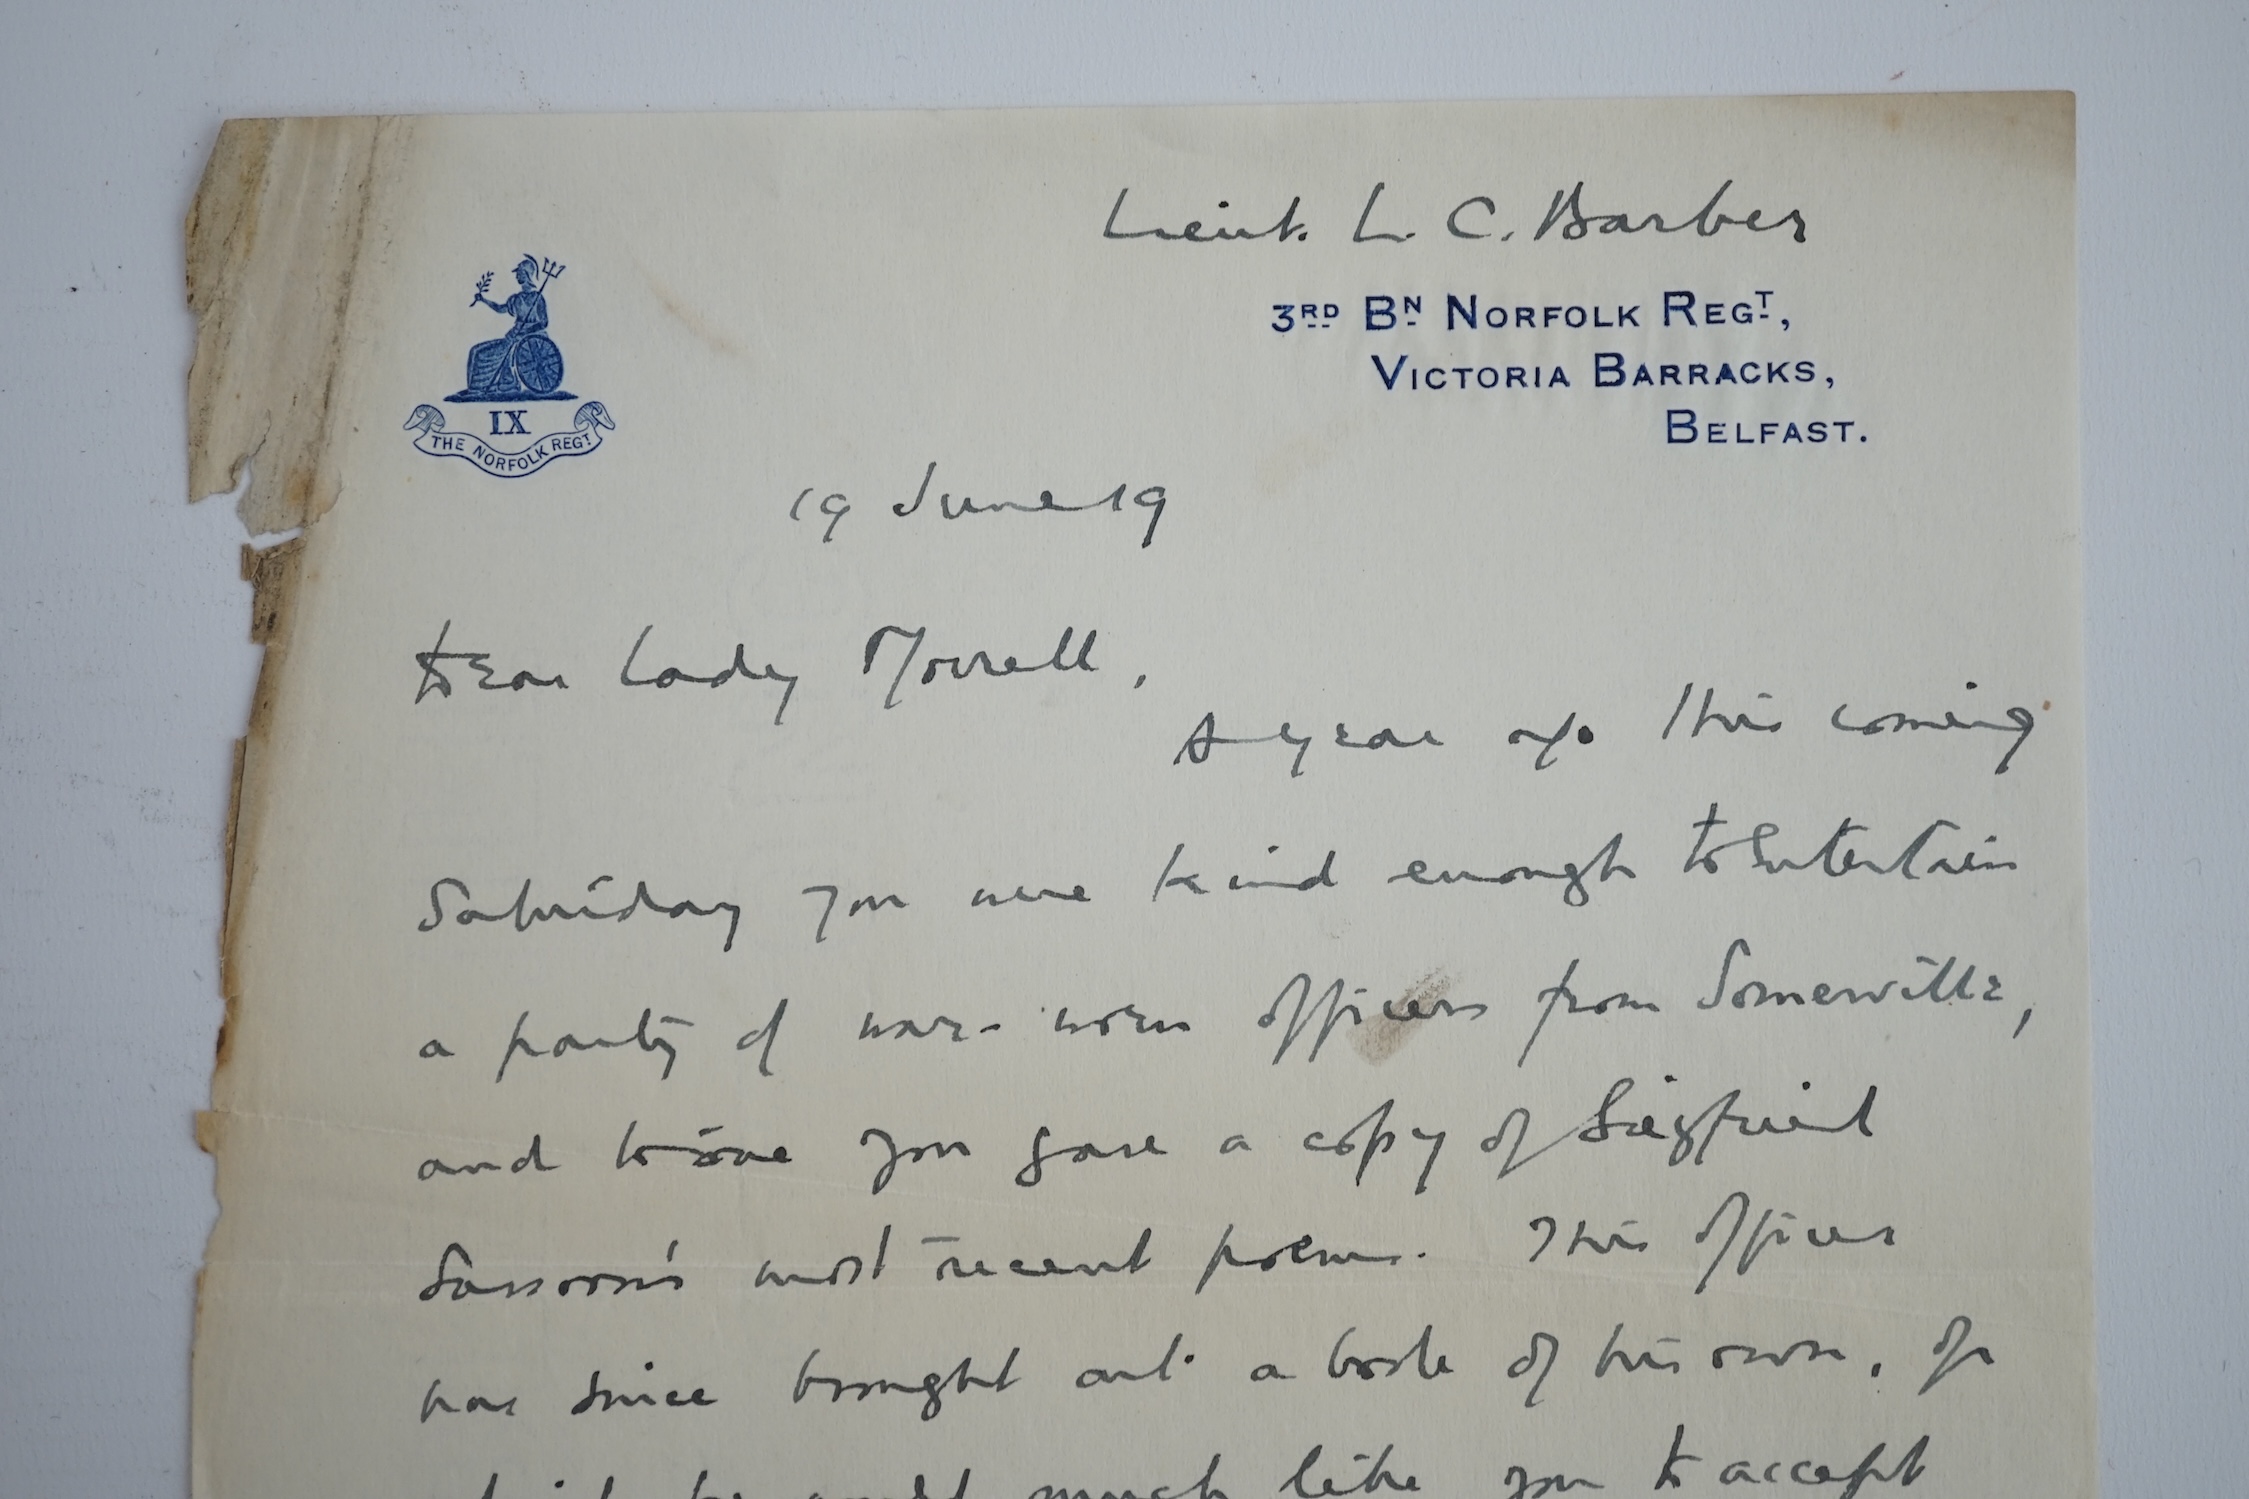 Lieut. L. C. Barber
3RD BN NORFOLK REGT,
VICTORIA BARRACKS,
BELFAST.
IX
THE NORFOLK REGT
19 June 19
Dear Lady Morrell,
A year ago this coming
Saturday you were kind enough to entertain
a party of war-worn officers from Somerville,
and to one you gave a copy of Siegfried
Sassoon's most recent poems. This officer
has since brought out a book of his own, of
which he would much like you to accept